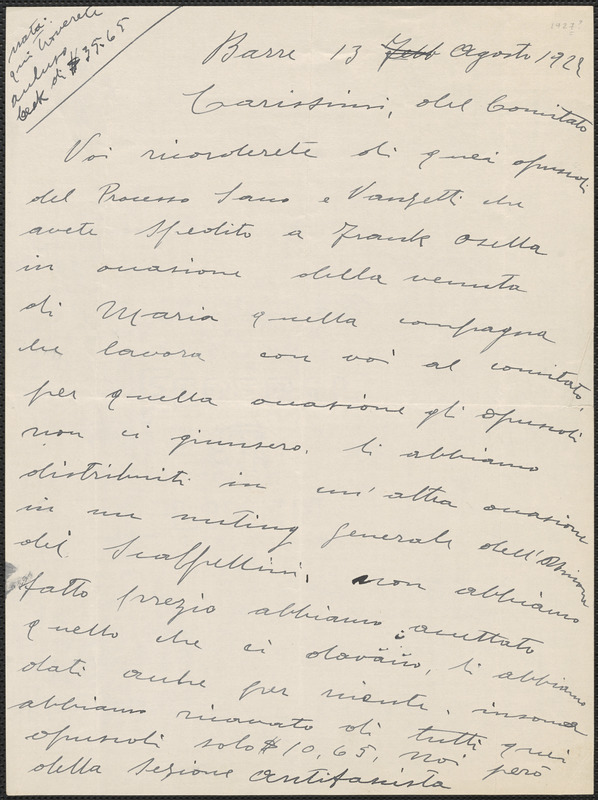 nota:
qui troverete
accluso
ceck di $35.65
1927?
Barre 13 Febb Agosto 192
Carissimi, del Comitato
Voi ricorderete di quei opuscoli
del Processo Sacco e Vanzetti che
avete spedito a Frank Osella
in occasione della venuta
di Maria quella compagna
che lavora con voi al comitato,
per quella occasione gli opuscoli
non ci giunsero. li abbiamo
distribuiti in un'altra occasione
in un miting generale dell'Unione
dei Scalpellini, non abbiamo
fatto prezio abbiamo accettato
quello che ci davano, li abbiamo
dati anche per niente. insomma
abbiamo ricavato di tutti quei
opuscoli solo $10,65, noi però
della sezione antifascista